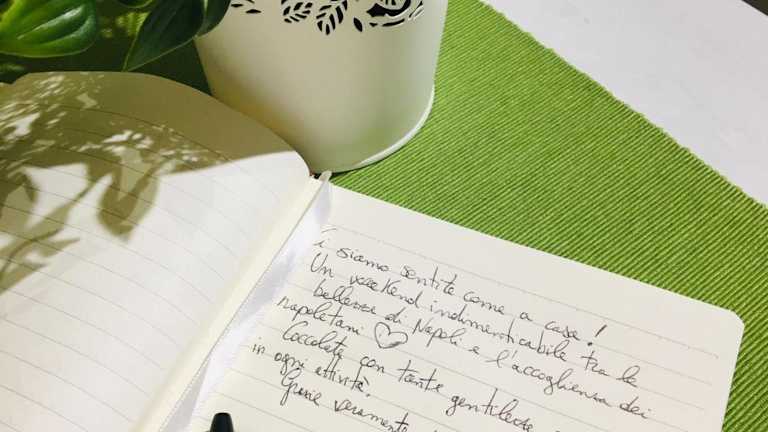 i siamo sentite come a casa!
Un weekend indimenticabile tra le
bellezze di Napoli e l'accoglienza dei
napoletani ♡
Coccolate con tante gentilezze
in ogni attività.
Grazie veramente